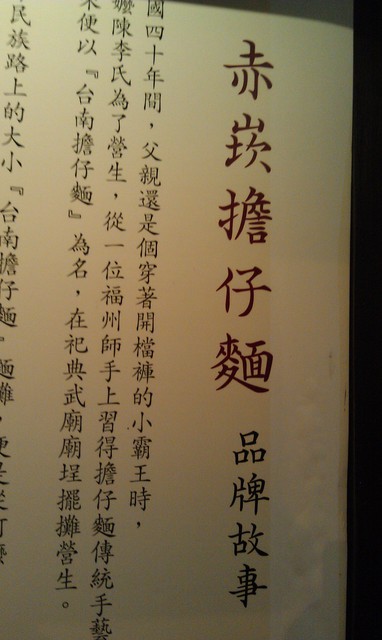 赤崁擔仔麵 品牌故事
國四十年間，父親還是個穿著開檔褲的小霸王時，
嬤陳李氏為了營生，從一位福州師手上習得擔仔麵傳統手藝
便以『台南擔仔麵』為名，在祀典武廟廟埕擺攤營生。
民族路上的大小『台南擔仔麵』麵攤，便是從